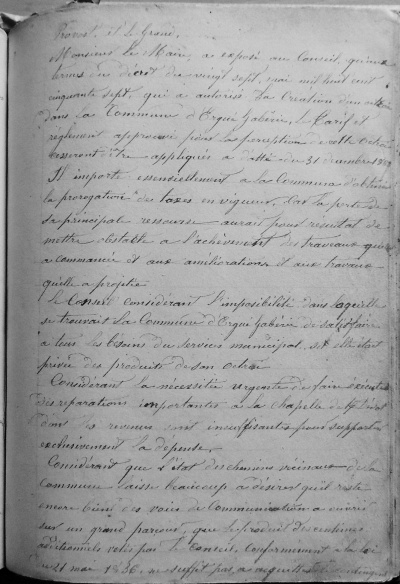 Provost, et le Grand,
Monsieur le Maire, a exposé au Conseil, qu'aux
termes du décret du vingt sept, mai mil huit cent
cinquante sept, qui a autorisé la Création d'un octroi
dans la Commune d'Ergué Gabéric, le Tarif et
règlement approuvé pour la perception de cette Octroi
cesseront d'être appliqués à datter du 31 décembre
Il importe essentiellement à la Commune d'obtenir
la prorogation des taxes en vigueur, car la perte de
sa principale ressource aurait pour résultat de
mettre obstacle à l'achevement des travaux qu'elle
a commencé et aux améliorations et aux travaux
qu'elle a projetté
Le Conseil considérant l'imposibilité dans laquelle
se trouvait la Commune d'Ergué Gabéric de satisfaire
a tous les besoins du service municipal, si elle était
privée des produits de son octroi
Considérant la nécessité urgente de faire éxécuter
des réparations importantes a la Chapelle de
dont les revenus sont insuffisants pour supporter
exclusivement la dépense,
Considérant que l'état des chemins vicinaux de la
Commune laisse beaucoup à désirer qu'il reste
encore bien des voies de Communication a ouvrir
sur un grand parcour, que le produit des centimes
additionnels votés par le Conseil Conformément à la loi
du 21 mai 1836, ne suffit pas à